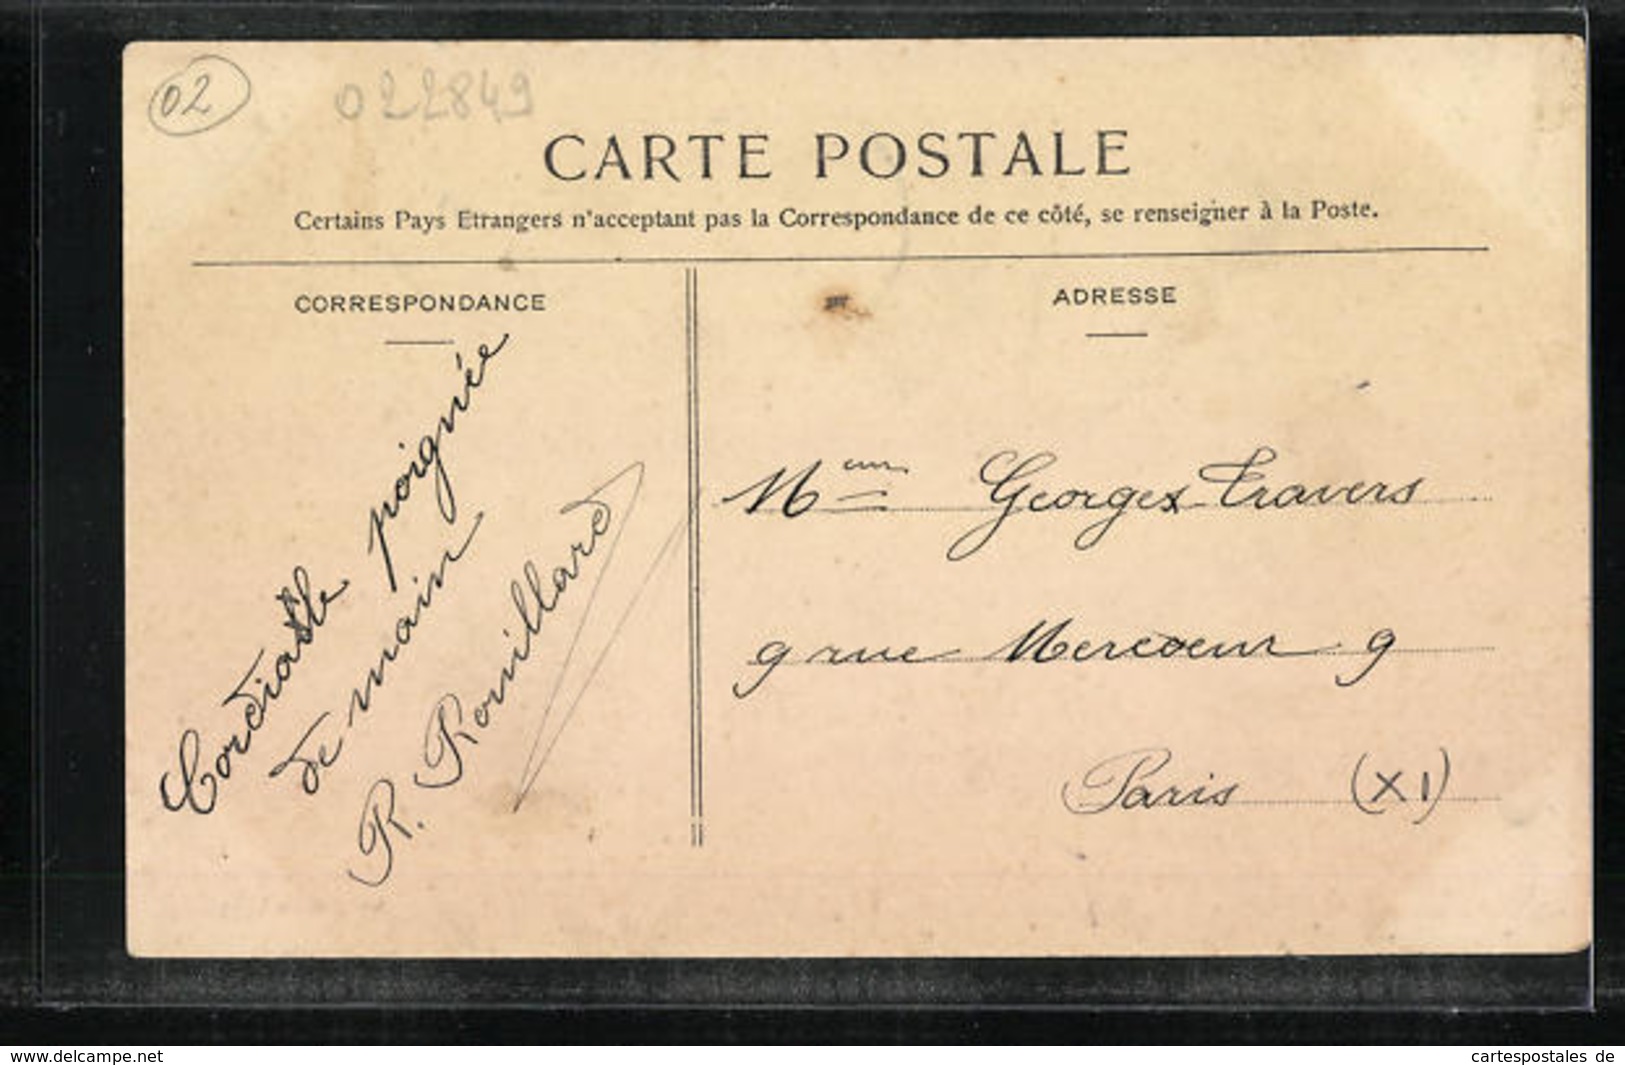 02
022849
CARTE POSTALE
Certains Pays Etrangers n'acceptant pas la Correspondance de ce côté, se renseigner à la Poste.
CORRESPONDANCE
ADRESSE
Cordiale poignée
de main
R. Rouillard
Mme Georges Travers
9 rue Mercoeur 9
Paris (XI)
www.delcampe.net
cartespostales de